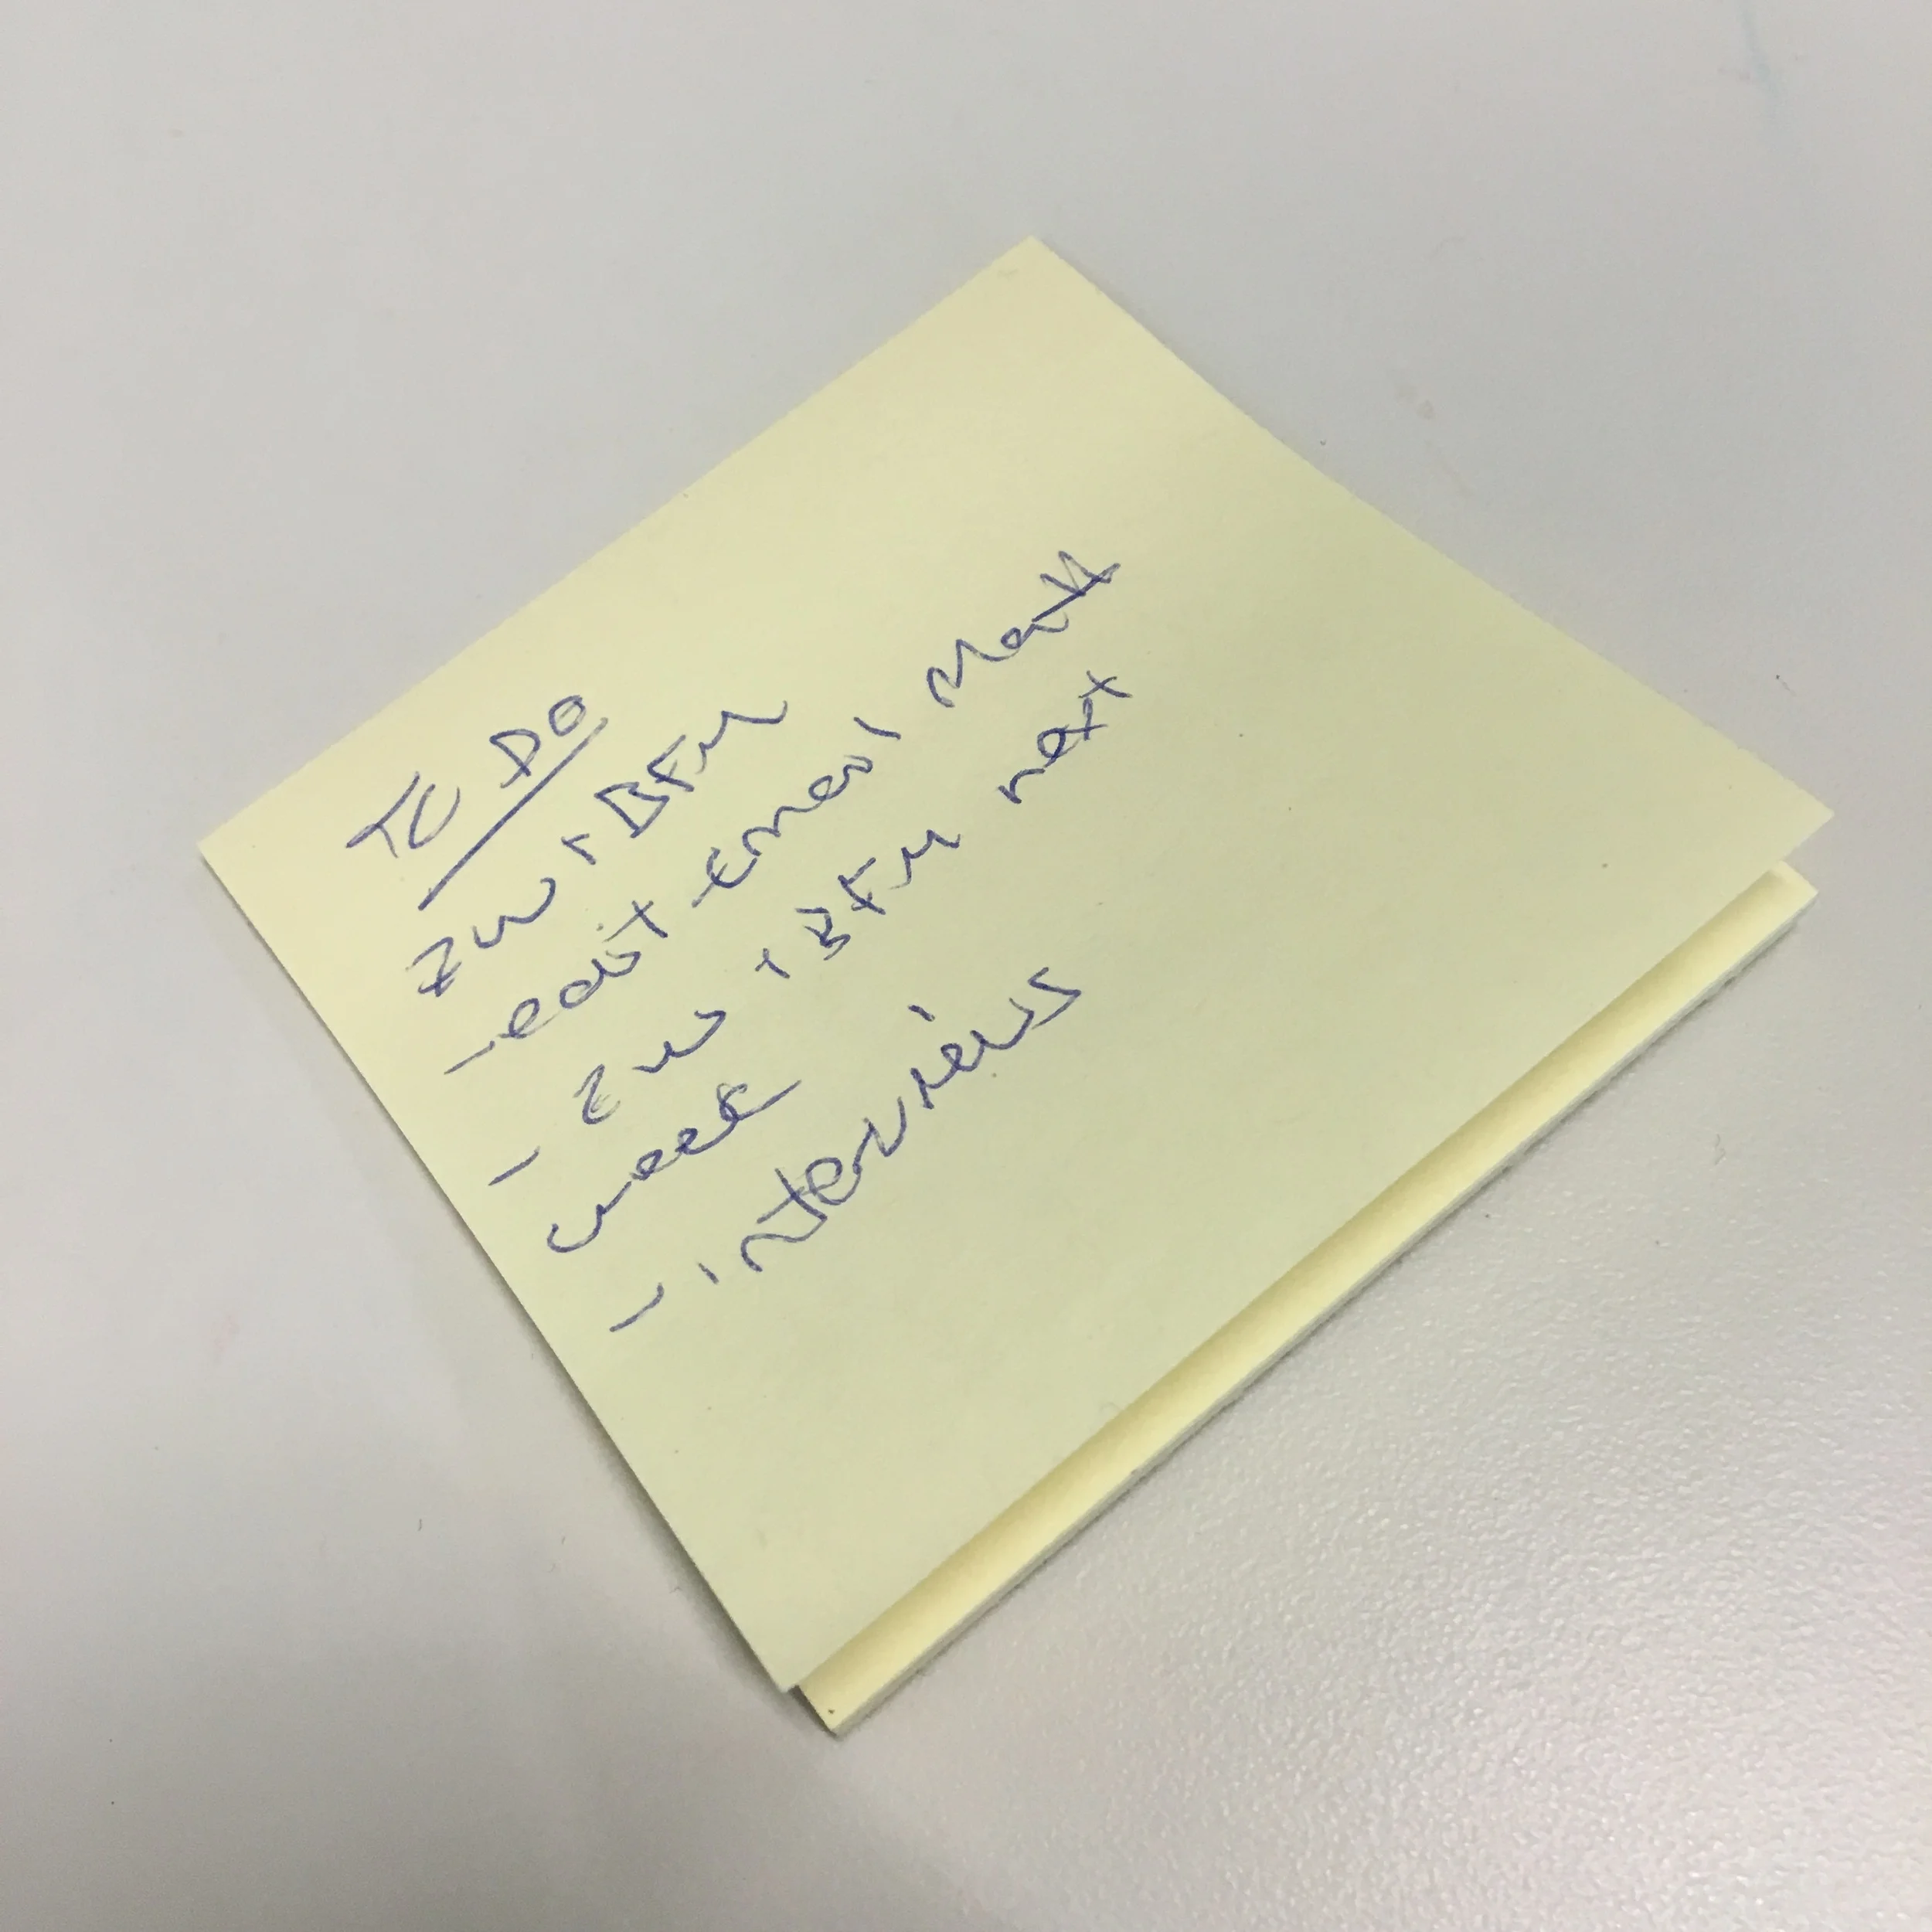 To Do
ZW + BFM
- edit email Matt
- ZW + BFM next
week
- interviews